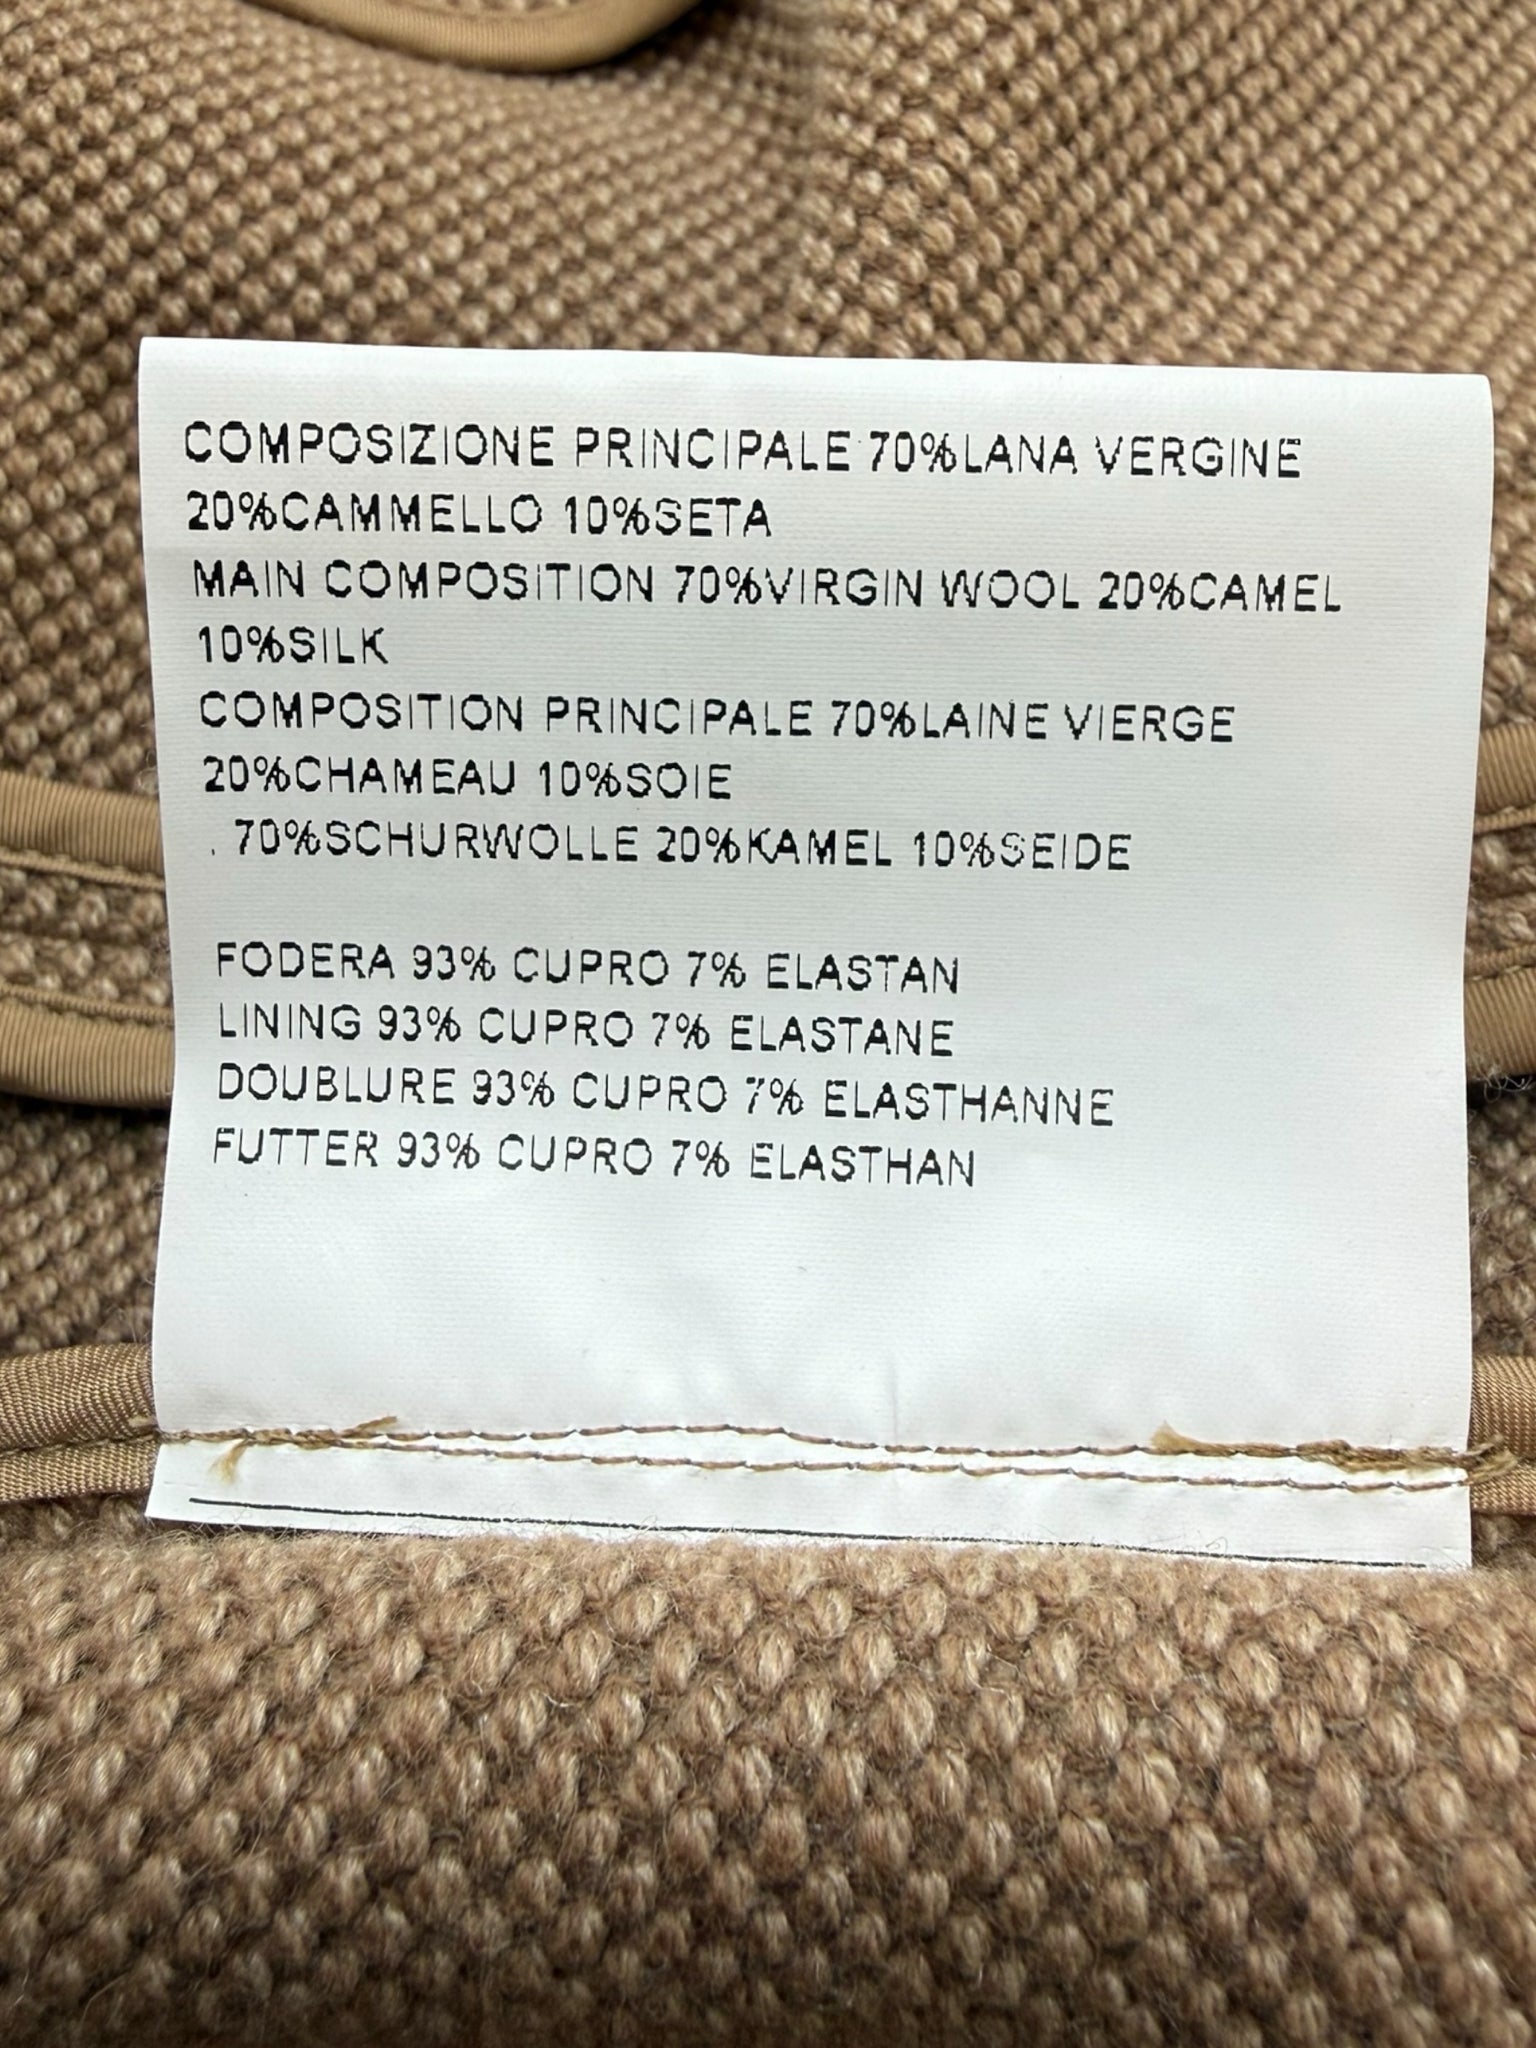 COMPOSIZIONE PRINCIPALE 70%LANA VERGINE
20%CAMMELLO 10%SETA
MAIN COMPOSITION 70%VIRGIN WOOL 20%CAMEL
10%SILK
COMPOSITION PRINCIPALE 70%LAINE VIERGE
20%CHAMEAU 10%SOIE
. 70%SCHURWOLLE 20%KAMEL 10%SEIDE
FODERA 93% CUPRO 7% ELASTAN
LINING 93% CUPRO 7% ELASTANE
DOUBLURE 93% CUPRO 7% ELASTHANNE
FUTTER 93% CUPRO 7% ELASTHAN